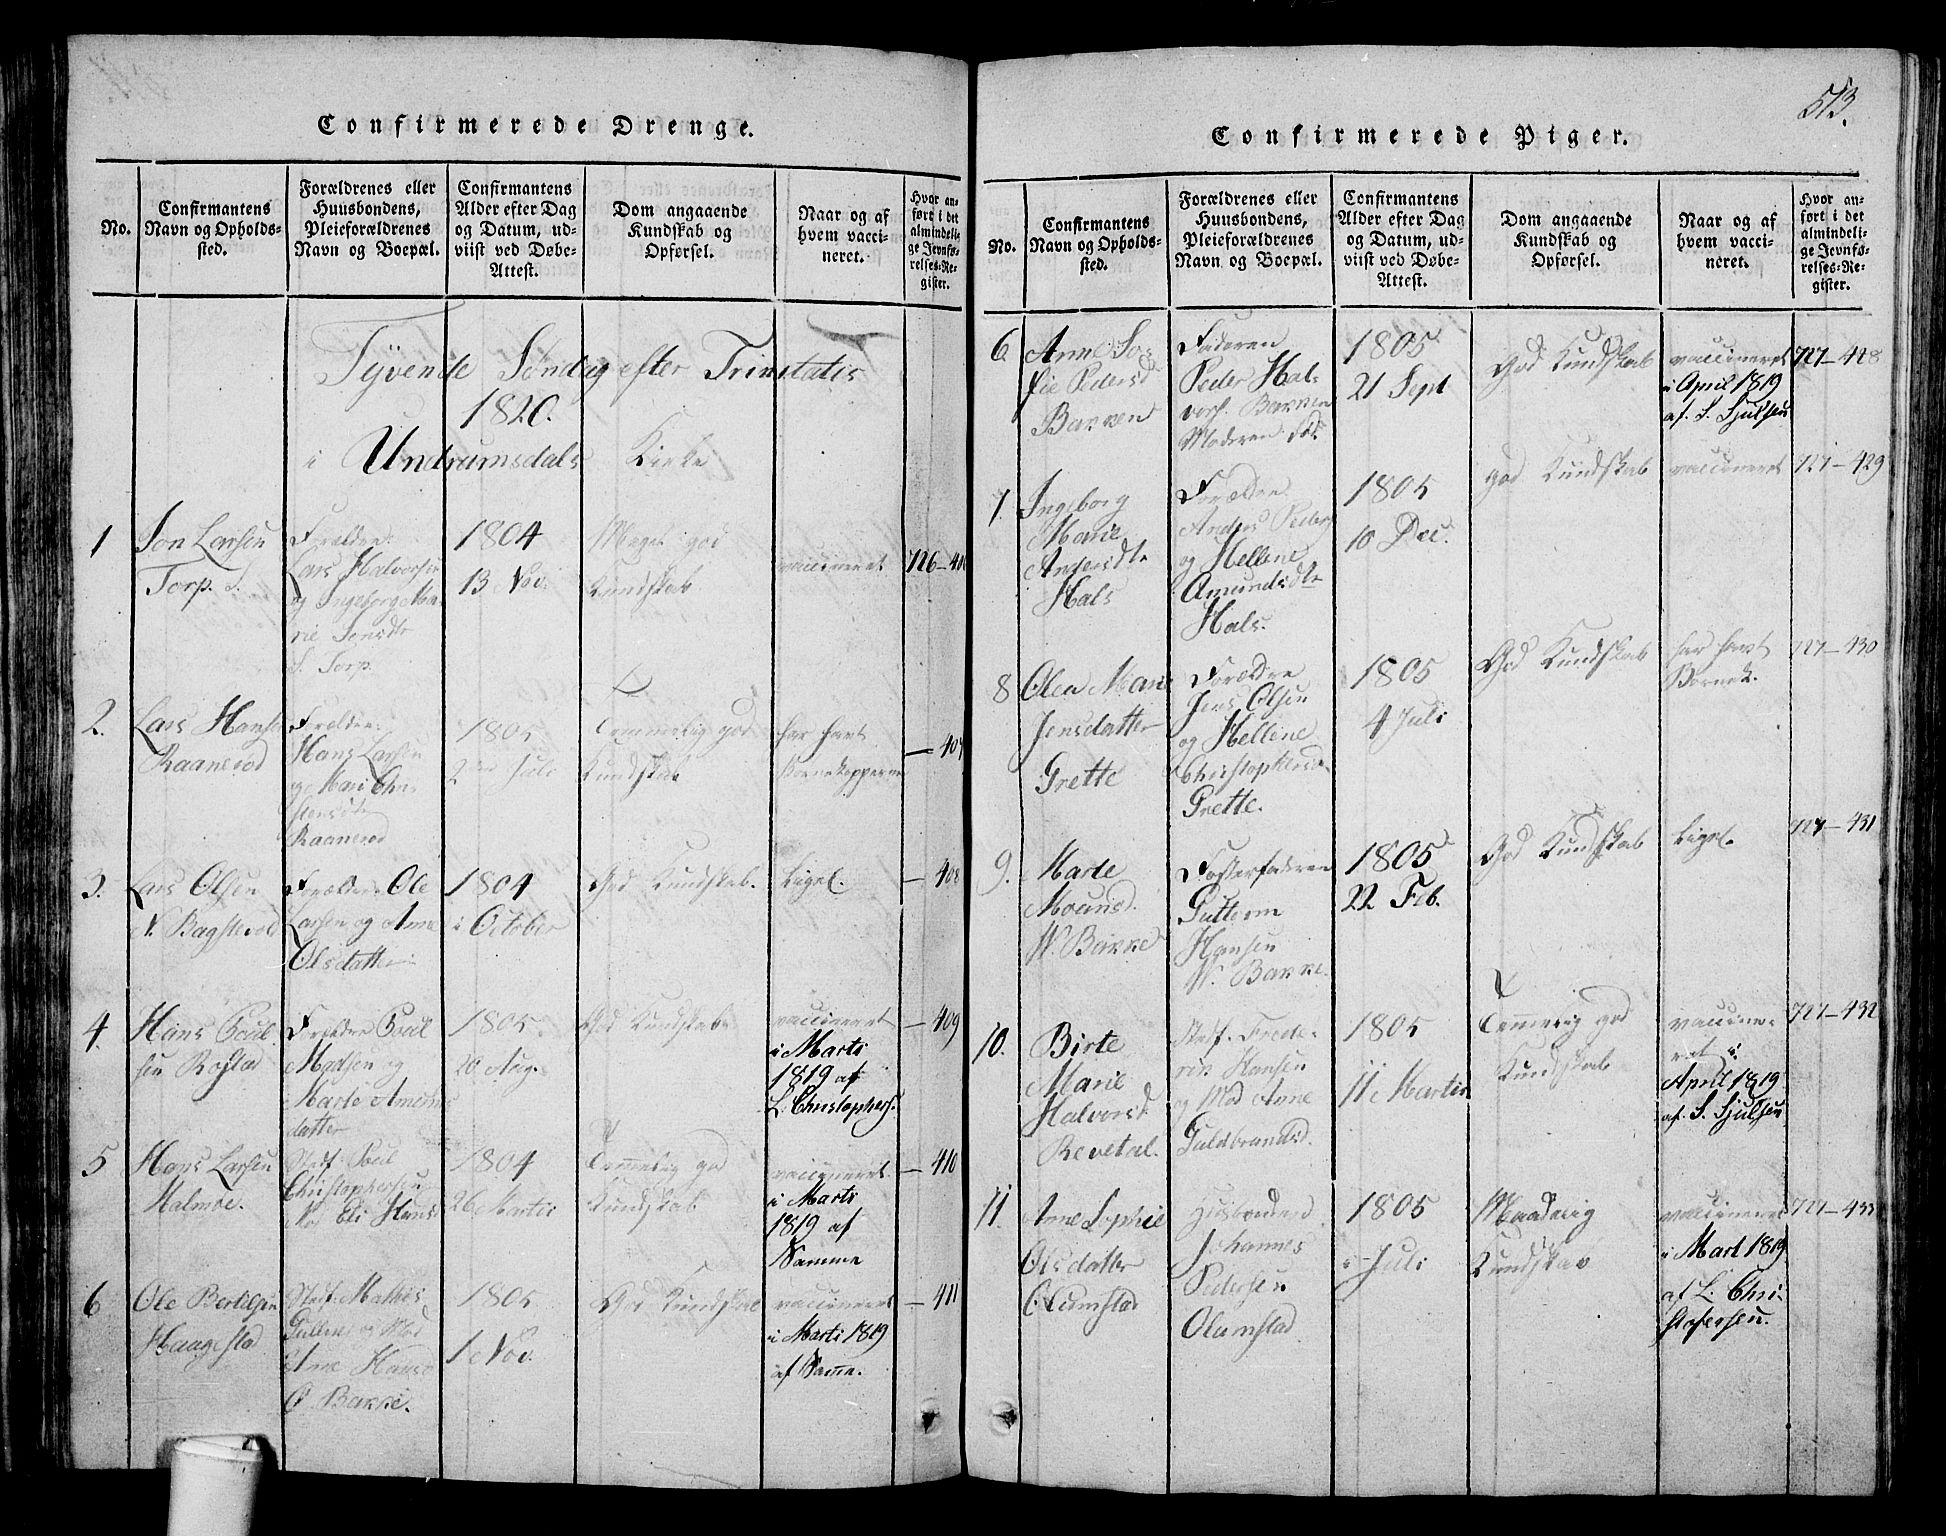 Confirmerede Drenge.
No.
Confirmantens
Navn og Opholds-
sted.
Forældrenes eller
Huusbondens,
Pleieforældrenes
Navn og Boepæl.
Confirmantens
Alder efter Dag
og Datum, ud-
viist ved Døbe-
Attest.
Dom angaaende
Kundskab og
Opførsel.
Naar og af
hvem vacci-
neret.
Hvor an-
ført i det
almindeli-
ge Jevnfø-
relses-Re-
gister.
Tyvende Søndag efter Trinitatis
1820.
i Undrumsdals Kirke
1
Jon Larsen
Torp. S.
Forældre:
Lars Halvorsen
og Ingeborg Ma-
rie Jensdtr
S. Torp.
1804
13 Nov.
Meget god
Kundskab
vaccineret
726-
2.
Lars Hansen
Raanerød
Forældre:
Hans Larsen
og Mari Chri-
stensdtr
Raanerød
1805
2den Juli
Temmelig god
Kundskab
har havt
Børnekopperne
— 407
3.
Lars Olsen
N. Bagsterød
Forældre Ole
Larsen og Anne
Olsdatter
1804
i October
God Kundskab.
Ligel.
— 408
4.
Hans Poul-
sen Rostad
Forældre Poul
Madsen og
Marte
datter
1805.
20 Aug.
God Kundskab
vaccineret
i Marts
1819 af
L. Christophers.
— 409
5
Hans Larsen
Holmøe.
Stef. Poul
Christophersen
Mo. Eli Hans
1804
26 Martii
Temmelig god
Kundskab
vaccineret
i Marts
1819 af
Samme
— 410
6
Ole Bertelsen
Haagestad
Stef. Mathis
Gullen og Mod
Ane Hansd
Ø Bakke.
1805
1 Nov.
God Kundskab
vaccineret
i Marts 1819
af Samme.
— 411
513.
Confirmerede Piger.
No.
Confirmantens
Navn og Opholds-
sted.
Forældrenes eller
Huusbondens,
Pleieforældrenes
Navn og Boepæl.
Confirmantens
Alder efter Dag
og Datum, ud-
viist ved Døbe-
Attest.
Dom angaaende
Kundskab og
Opførsel.
Naar og af
hvem vacci-
neret.
Hvor an-
ført i det
almindeli-
ge Jevnfø-
relses-Re-
gister.
6
Anne So-
fie Pedersd
Bakken
Faderen
Peder Hal-
vors. Bakken
Moderen død
1805
21 Sept
God Kundskab
vaccineret
i April 1819
af S. Sjulsen
727-428
7.
Ingeborg
Marie
Andersdtr
Hals
Forældre
Anders Peders
og Hellene
Amundsdtr
Hals.
1805
10 Dec.
god Kundskab
vaccineret
727-429
8
Olea Marie
Jensdatter
Grette
Forældre
Jens Olsen
og Hellene
Christophersd.
Grette.
1805
4 Juli
God Kundskab
har havt
Børnek.
727-430
9.
Marte
Mounsd.
W. Bakke
Fosterfaderen
Guttorm
Hansen
W. Bakke.
1805
22 Feb.
God Kundskab
Ligel.
727-431
10.
Birte
Marie
Halvorsd
Revetal.
Stef. Frede-
rik Hansen
og Mod Anne
Guldbrandsd.
1805
11 Martii
Temmelig god
Kundskab
vaccine-
ret i
April 1819
af S. Sjulsen
727-432
11.
Anne Sophie
Olsdatter
Olumstad
Husbonden
Johannes
Pedersen
Olumstad
1805
i Juli
Maadelig
Kundskab
vaccineret
i Mart 1819
af L. Chri-
stofersen.
727-433